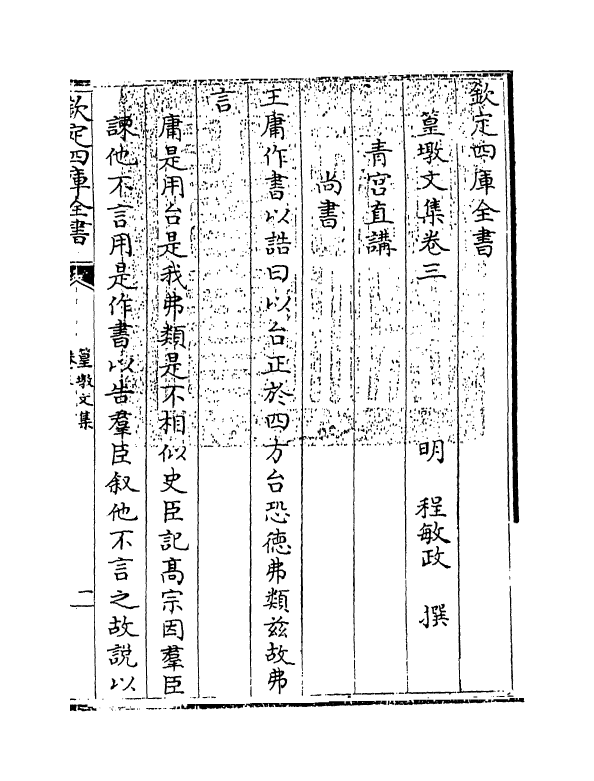 欽定四庫全書
篁墩文集卷三
明 程敏政 撰
青宮直講
尚書
王庸作書以誥曰以台正於四方台恐德弗類茲故弗
言
庸是用台是我弗類是不相似史臣記髙宗因羣臣
諫他不言用是作書以告羣臣叙他不言之故説以
欽定四庫全書
篁墩文集